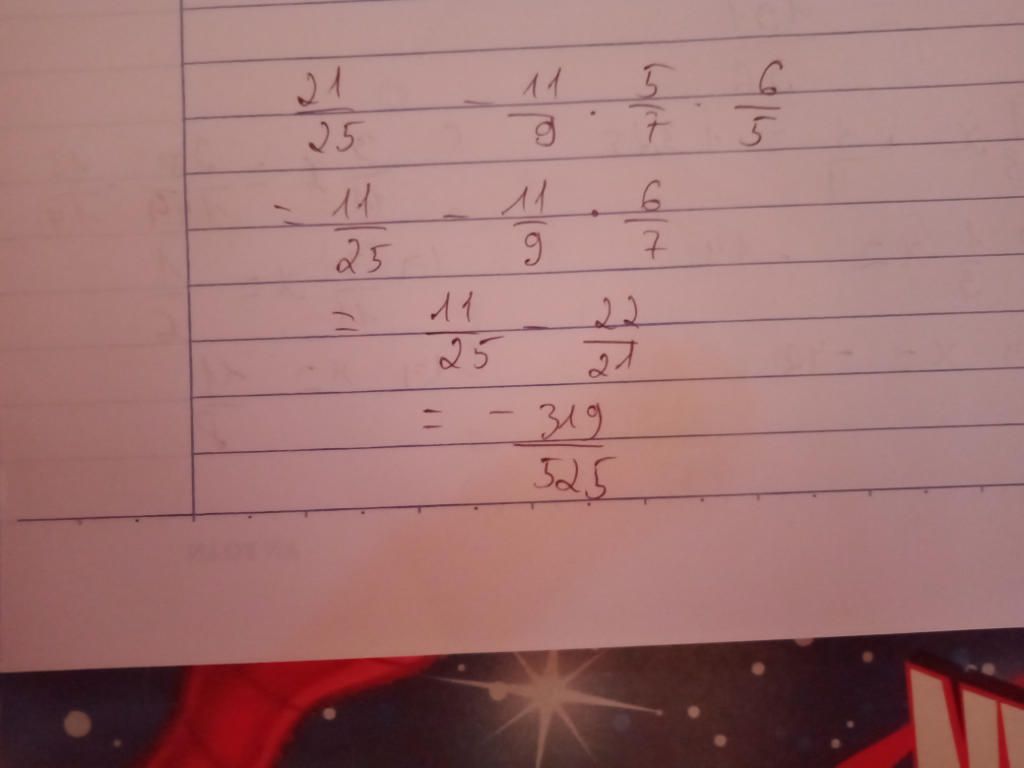 21/25 - 11/9 · 5/7 · 6/5
= 11/25 - 11/9 · 6/7
= 11/25 - 22/21
= - 319/525